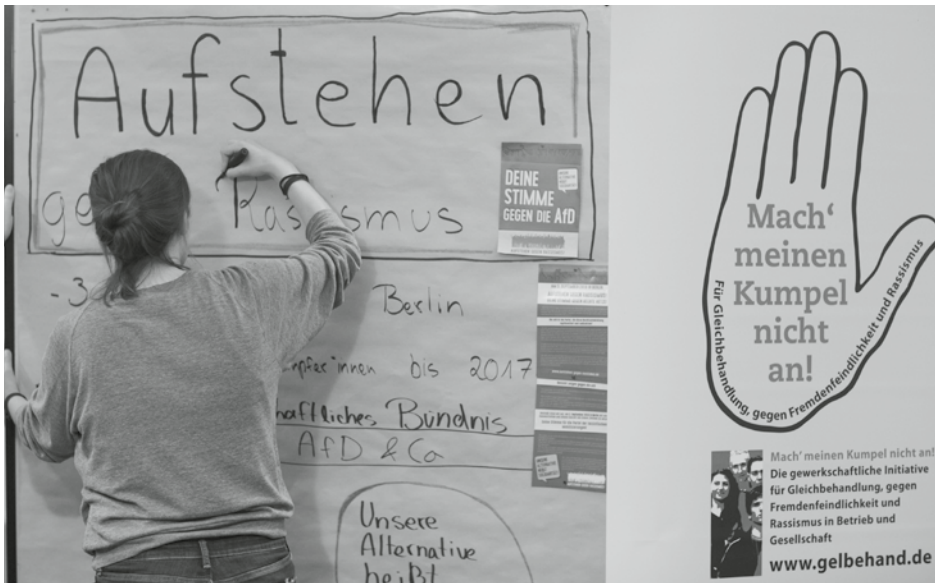 Aufstehen
ge Rassismus
-3
Berlin
bis 2017
haftliches Bündnis
AfD & Co
Unsere
Alternative
heißt
DEINE
STIMME
GEGEN DIE AfD
Mach‘
meinen
Kumpel
nicht
an!
Für Gleichbehandlung, gegen Fremdenfeindlichkeit und Rassismus
Mach’ meinen Kumpel nicht an!
Die gewerkschaftliche Initiative
für Gleichbehandlung, gegen
Fremdenfeindlichkeit und
Rassismus in Betrieb und
Gesellschaft
www.gelbehand.de